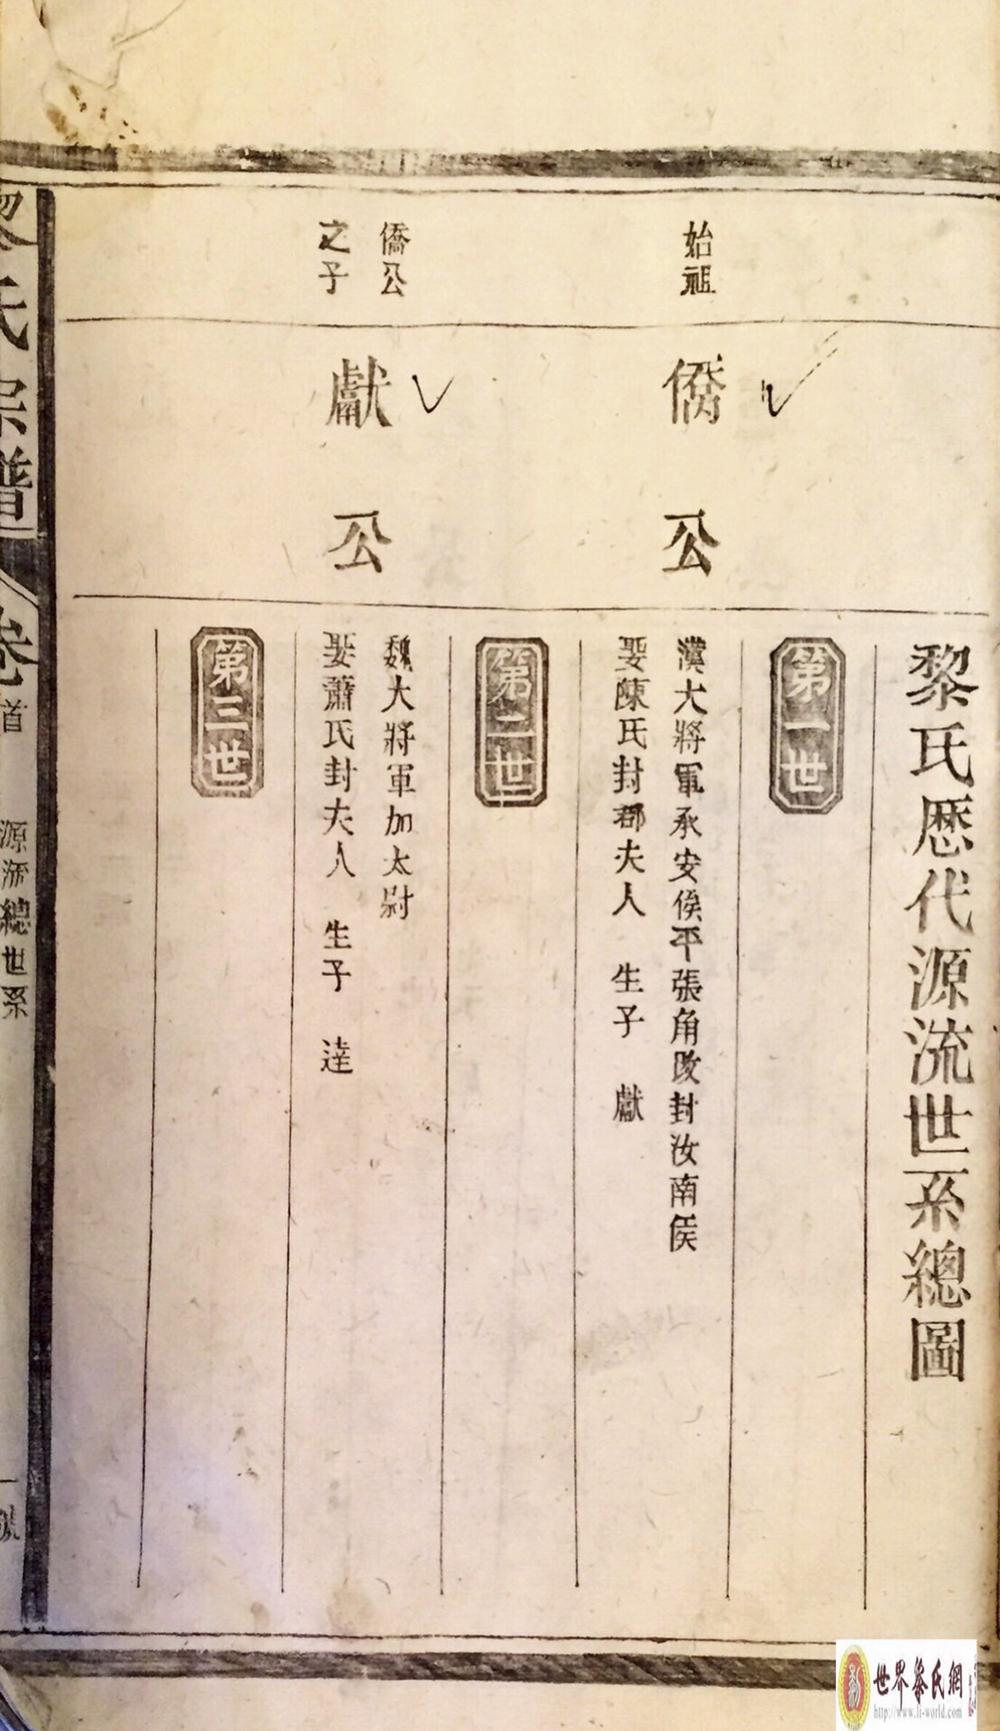 黎氏歷代源流世系總圖
第一世
始祖
僑公
漢大將軍承安侯平張角改封汝南侯
娶陳氏封郡夫人 生子 獻
第二世
僑公
之子
獻公
魏大將軍加太尉
娶蕭氏封夫人 生子 達
第三世
黎氏宗譜
卷首
源流總世系
一
世界黎氏網
http://www.li-world.com